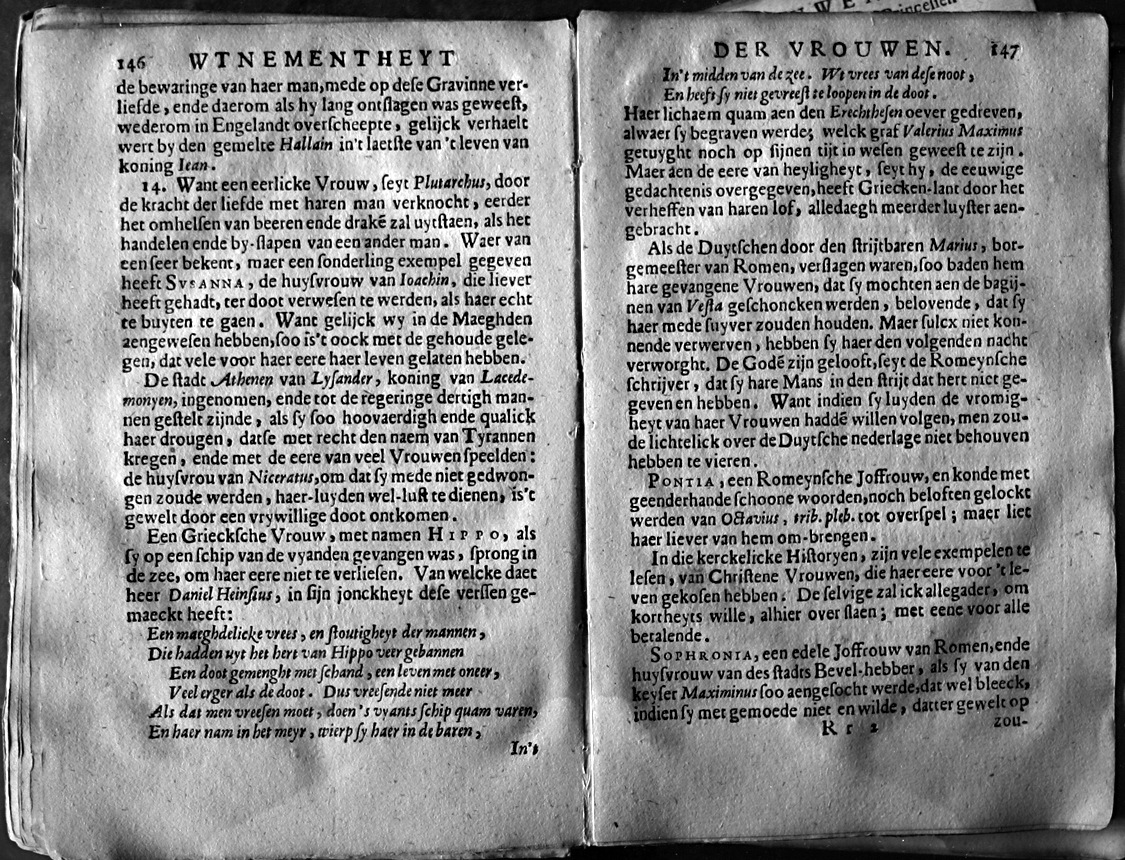 146 WTNEMENTHEYT
de bewaringe van haer man,mede op deſe Gravinne ver-
liefde, ende daerom als hy lang ontſlagen was geweeſt,
wederom in Engelandt overſcheepte, gelijck verhaelt
wert by den gemelte Hallain in't laetſte van 't leven van
koning Iean.
14. Want een eerlicke Vrouw, ſeyt Plutarchus, door
de kracht der liefde met haren man verknocht, eerder
het omhelſen van beeren ende drakē zal uytſtaen, als het
handelen ende by-ſlapen van een ander man. Waer van
een ſeer bekent, maer een ſonderling exempel gegeven
heeft SVSANNA, de huyſvrouw van Ioachin, die liever
heeft gehadt, ter doot verweſen te werden, als haer echt
te buyten te gaen. Want gelijck wy in de Maeghden
aengeweſen hebben,ſoo is't oock met de gehoude gele-
gen, dat vele voor haer eere haer leven gelaten hebben.
De ſtadt Athenen van Lyſander, koning van Lacede-
monyen, ingenomen, ende tot de regeringe dertigh man-
nen geſtelt zijnde, als ſy ſoo hoovaerdigh ende qualick
haer drougen, datſe met recht den naem van Tyrannen
kregen, ende met de eere van veel Vrouwen ſpeelden:
de huyſvrou van Niceratus,om dat ſy mede niet gedwon-
gen zoude werden, haer-luyden wel-luſt te dienen, is't
gewelt door een vrywillige doot ontkomen.
Een Grieckſche Vrouw, met namen HIPPO, als
ſy op een ſchip van de vyanden gevangen was, ſprong in
de zee, om haer eere niet te verlieſen. Van welcke daet
heer Daniel Heinſius, in ſijn jonckheyt deſe verſſen ge-
maeckt heeft:
Een maeghdelicke vrees, en ſtoutigheyt der mannen,
Die hadden uyt het hert van Hippo veer gebannen
Een doot gemenght met ſchand, een leven met oneer,
Veel erger als de doot. Dus vreeſende niet meer
Als dat men vreeſen moet, doen 's vyants ſchip quam varen,
En haer nam in het meyr, wierp ſy haer in de baren,
In't
DER VROUWEN. 147
In't midden van de zee. Wt vrees van deſe noot,
En heeft ſy niet gevreeſt te loopen in de doot.
Haer lichaem quam aen den Erechtheſen oever gedreven,
alwaer ſy begraven werde; welck graf Valerius Maximus
getuyght noch op ſijnen tijt in weſen geweeſt te zijn.
Maer aen de eere van heyligheyt, ſeyt hy, de eeuwige
gedachtenis overgegeven,heeft Griecken-lant door het
verheffen van haren lof, alledaegh meerder luyſter aen-
gebracht.
Als de Duytſchen door den ſtrijtbaren Marius, bor-
gemeeſter van Romen, verſlagen waren,ſoo baden hem
hare gevangene Vrouwen, dat ſy mochten aen de bagij-
nen van Veſta geſchoncken werden, belovende, dat ſy
haer mede ſuyver zouden houden. Maer ſulcx niet kon-
nende verwerven, hebben ſy haer den volgenden nacht
verworght. De Godē zijn gelooft,ſeyt de Romeynſche
ſchrijver, dat ſy hare Mans in den ſtrijt dat hert niet ge-
geven en hebben. Want indien ſy luyden de vromig-
heyt van haer Vrouwen haddē willen volgen, men zou-
de lichtelick over de Duytſche nederlage niet behouven
hebben te vieren.
PONTIA, een Romeynſche Joffrouw, en konde met
geenderhande ſchoone woorden,noch beloften gelockt
werden van Octavius, trib. pleb. tot overſpel; maer liet
haer liever van hem om-brengen.
In die kerckelicke Hiſtoryen, zijn vele exempelen te
leſen, van Chriſtene Vrouwen, die haer eere voor 't le-
ven gekoſen hebben. De ſelvige zal ick allegader, om
kortheyts wille, alhier over ſlaen; met eene voor alle
betalende.
SOPHRONIA, een edele Joffrouw van Romen,ende
huyſvrouw van des ſtadts Bevel-hebber, als ſy van den
keyſer Maximinus ſoo aengeſocht werde,dat wel bleeck,
indien ſy met gemoede niet en wilde, datter gewelt op
Rr 2 zou-